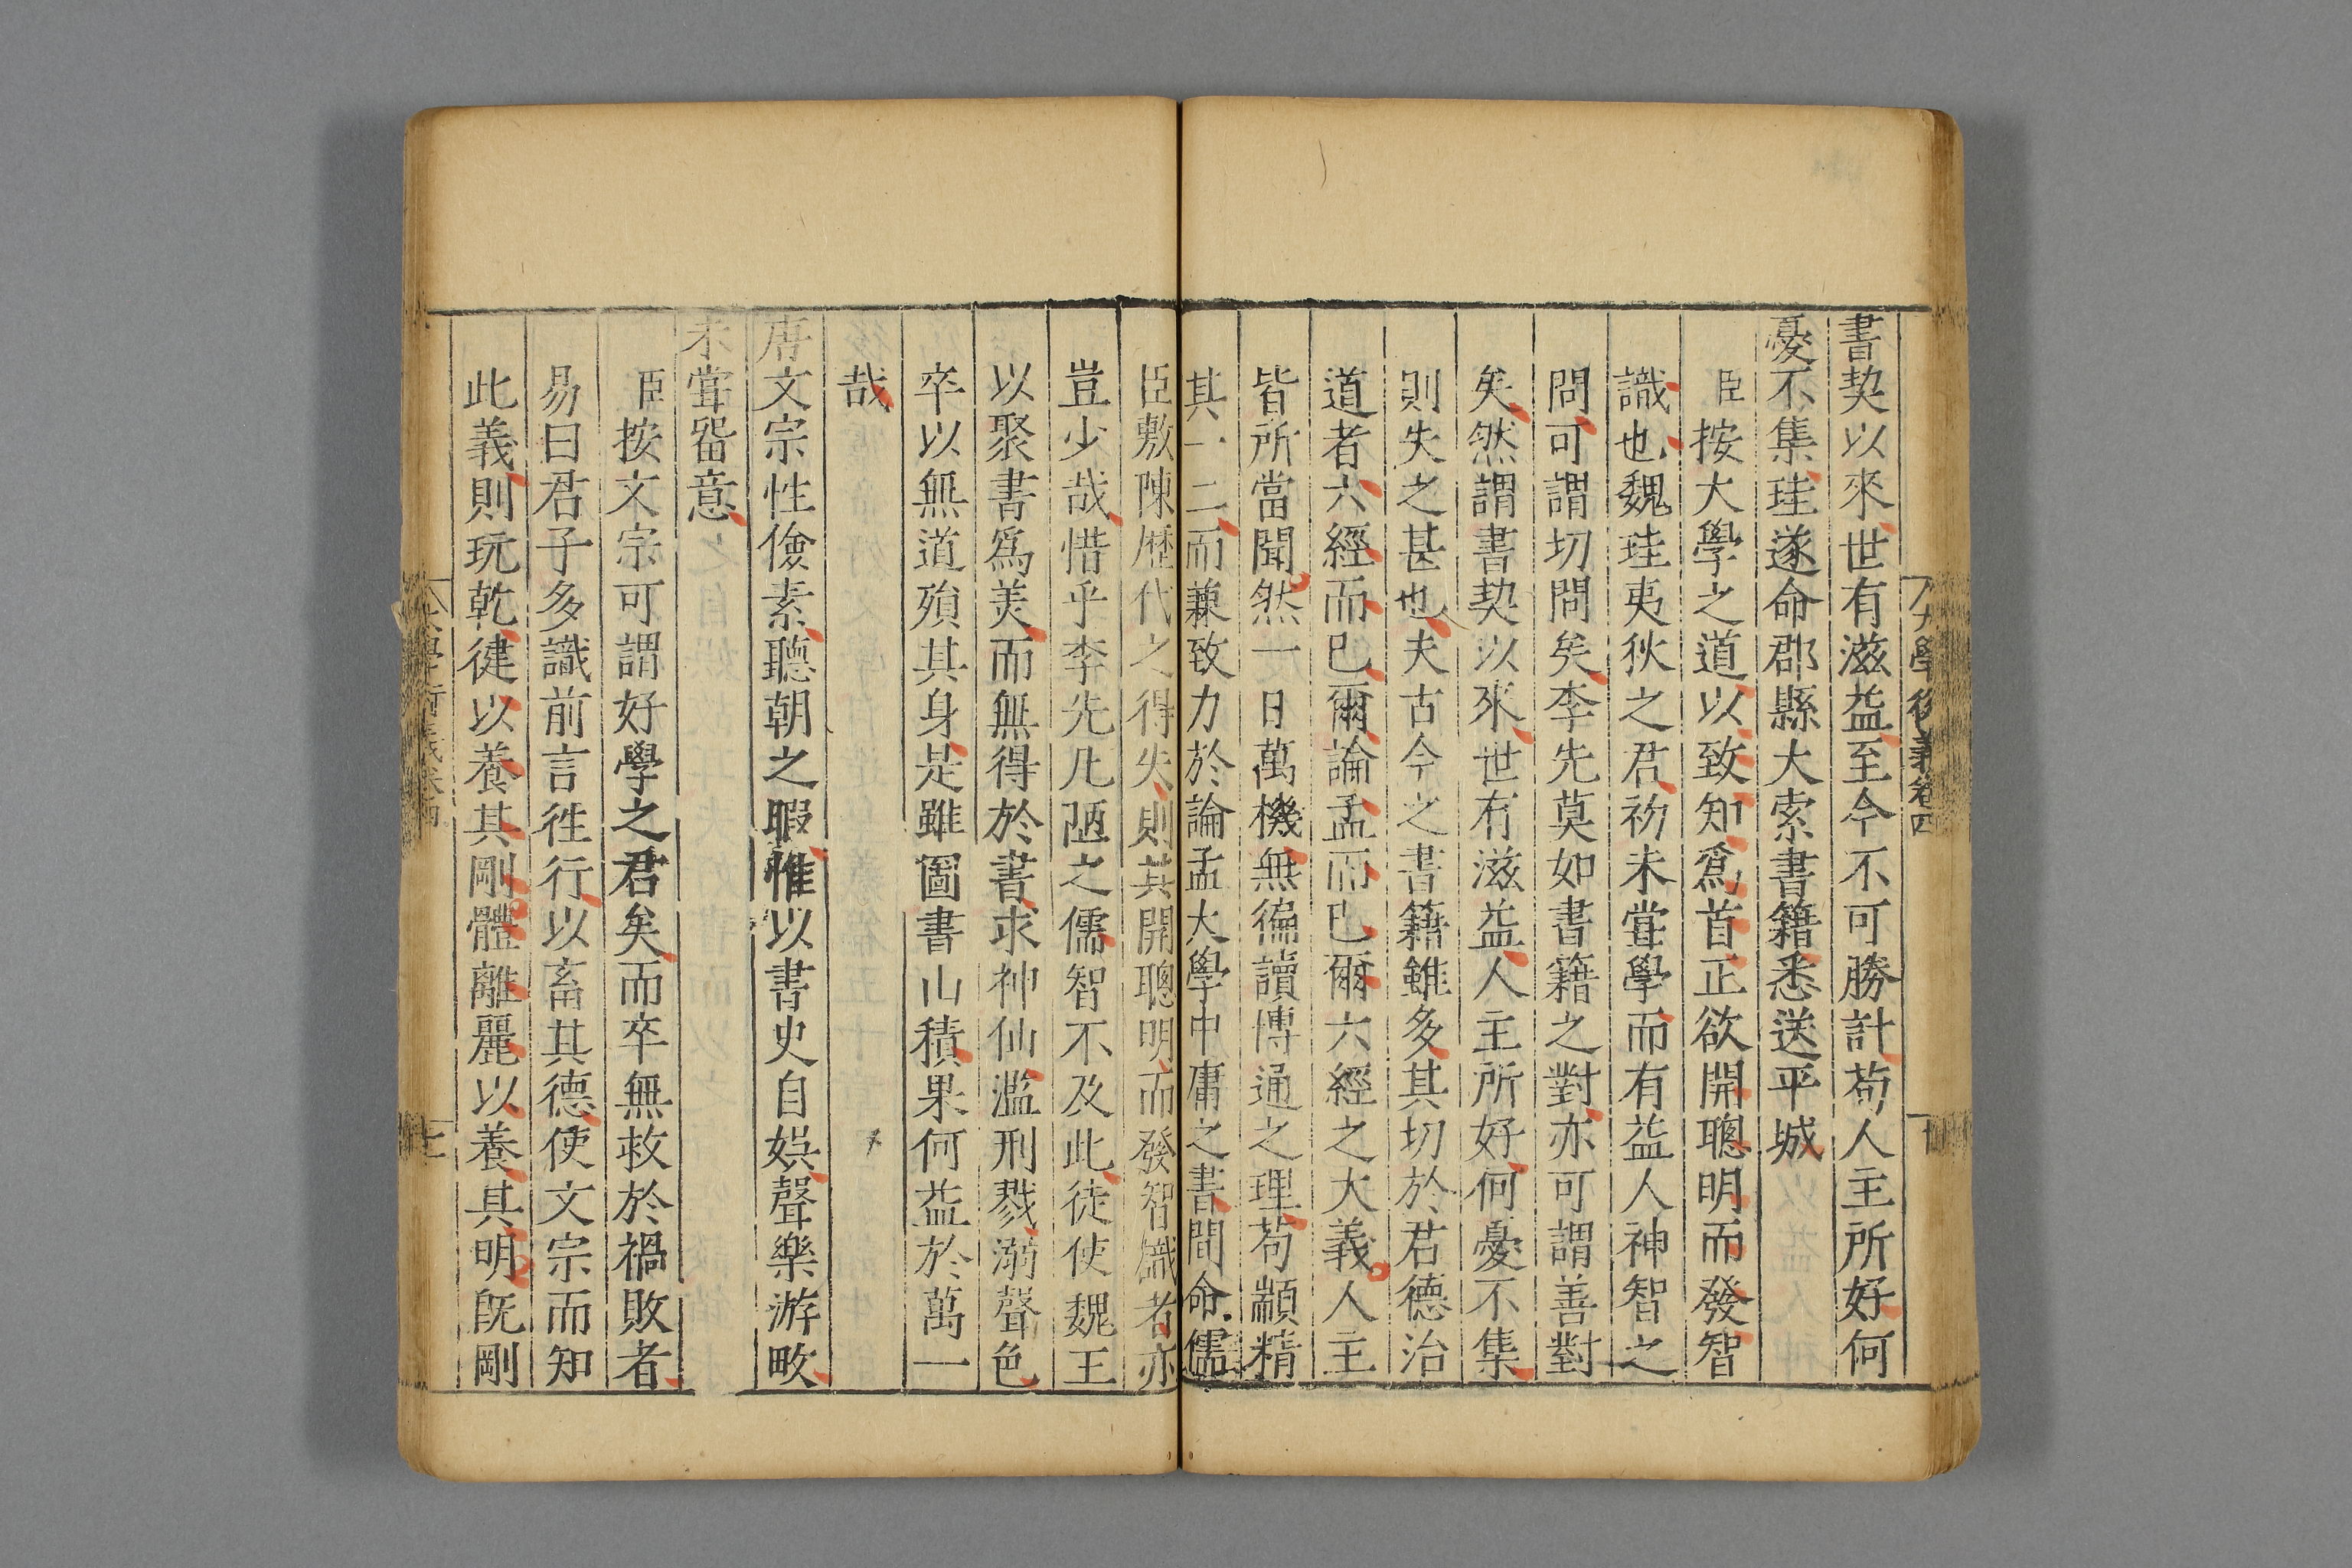 書契以來世有滋益至今不可勝計苟人主所好何
憂不集珪遂命郡縣大索書籍悉送平城
臣按大學之道以致知爲首正欲開聰明而發智
識也魏珪夷狄之君初未甞學而有益人神智之
問可謂切問矣李先莫如書籍之對亦可謂善對
矣然謂書契以來世有滋益人主所好何憂不集
則失之甚也夫古今之書籍雖多其切於君德治
道者六經而已爾論孟而已爾六經之大義人主
皆所當聞然一日萬機無徧讀博通之理苟顓精
其一二而兼致力於論孟大學中庸之書間命儒
臣敷陳歷代之得失則其開聰明而發智識者亦
豈少哉惜乎李先凡陋之儒智不及此徒使魏王
以聚書爲美而無得於書求神仙濫刑戮溺聲色
卒以無道殞其身是雖圖書山積果何益於萬一
哉
唐文宗性儉素聽朝之暇惟以書史自娛聲樂游畋
未甞畱意
臣按文宗可謂好學之君矣而卒無救於禍敗者
易曰君子多識前言徃行以畜其德使文宗而知
此義則玩乾健以養其剛體離麗以養其明旣剛
大學衍義卷四